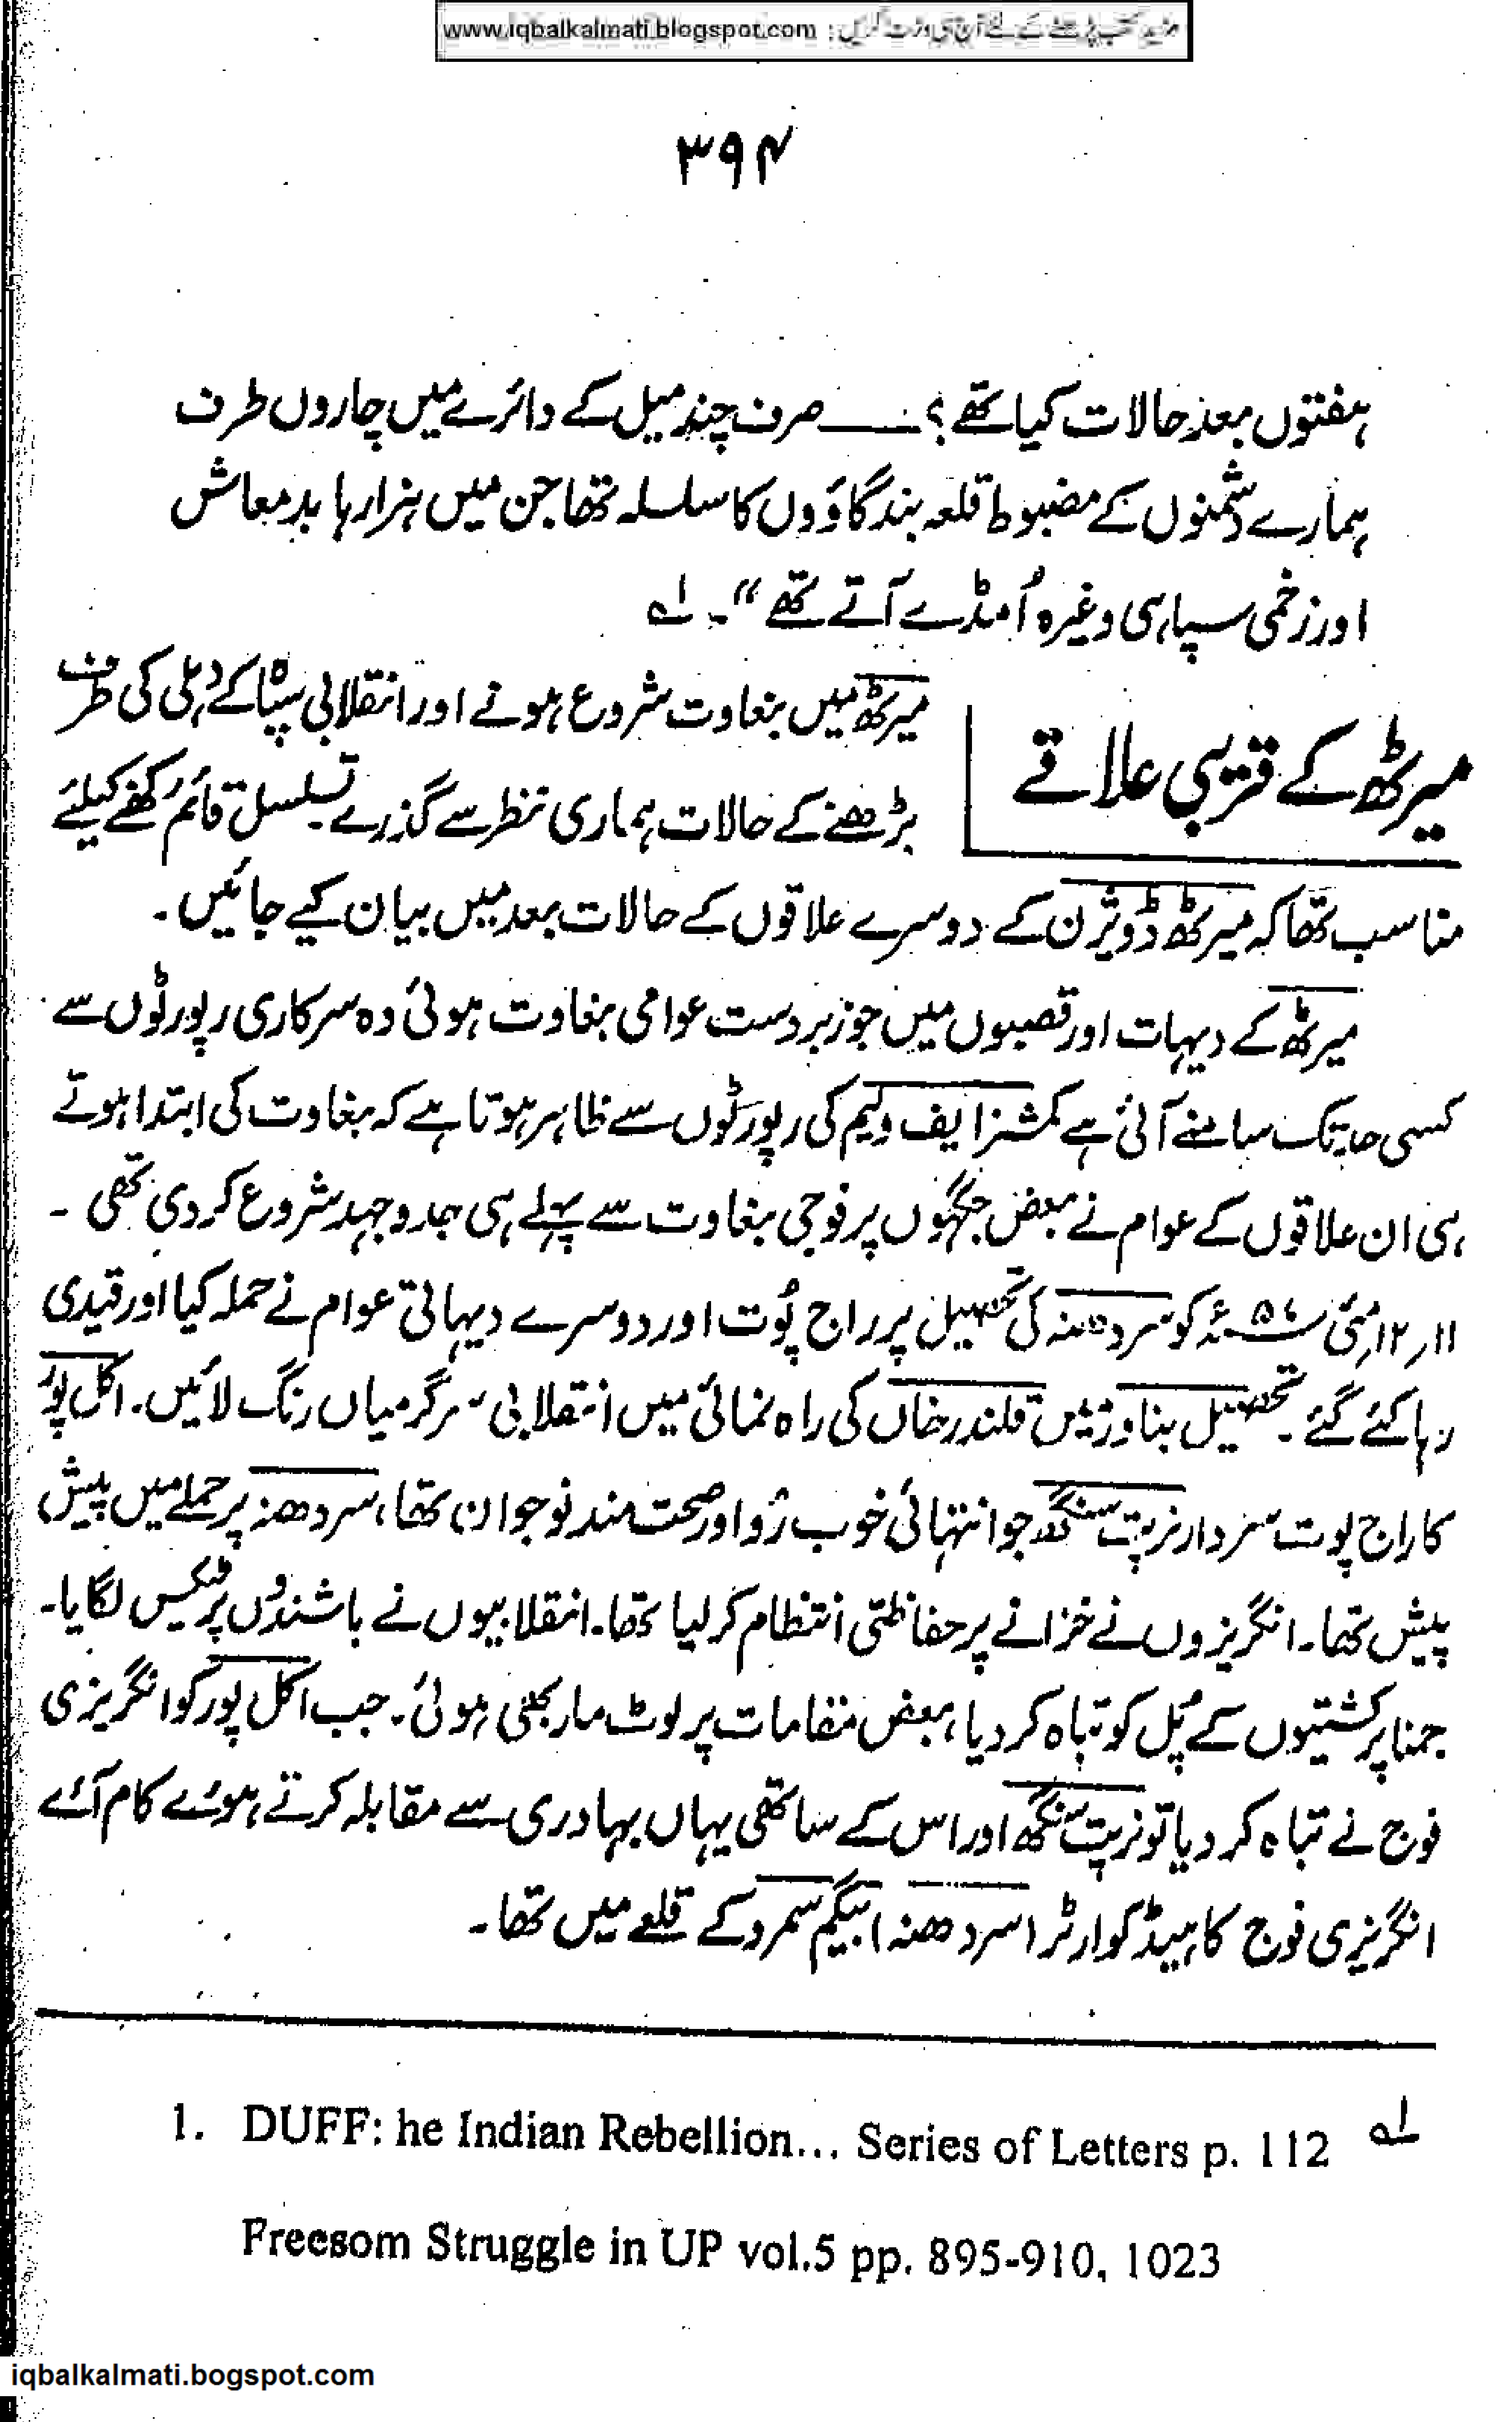 مزید کتب پڑھنے کے لئے آج ہی وزٹ کریں : www.iqbalkalmati.blogspot.com
۳۹۴
ہفتوں بعد حالات کیا تھے؟ ــــــ صرف چند میل کے دائرے میں چاروں طرف
ہمارے دشمنوں کے مضبوط قلعہ بند گاؤوں کا سلسلہ تھا جن میں ہزارہا بدمعاش
اور زخمی سپاہی وغیرہ اُمنڈے آتے تھے“۔ لہ
میرٹھ کے قریبی علاقے
میرٹھ میں بغاوت شروع ہونے اور انقلابی سپاہ کے دہلی کی طرف
بڑھنے کے حالات ہماری نظر سے گذرے۔ تسلسل قائم رکھنے کیلئے
مناسب تھا کہ میرٹھ ڈویژن کے دوسرے علاقوں کے حالات بعد میں بیان کیے جائیں۔
میرٹھ کے دیہات اور قصبوں میں جو زبردست عوامی بغاوت ہوئی وہ سرکاری رپورٹوں سے
کسی حد تک سامنے آئی ہے کمشنر ایف ولیم کی رپورٹوں سے ظاہر ہوتا ہے کہ بغاوت کی ابتدا ہوتے
ہی ان علاقوں کے عوام نے بعض جگہوں پر فوجی بغاوت سے پہلے ہی جدوجہد شروع کر دی تھی۔
۱۱ر۱۲ مئی ۵۷ء کو سردھنہ کی تحصیل پر راج پُوت اور دوسرے دیہاتی عوام نے حملہ کیا اور قیدی
رہا کئے گئے۔ تحصیل بناوژ میں قلندر خاں کی راہ نمائی میں انقلابی سرگرمیاں رنگ لائیں۔ اکل پور
کا راج پوت سردار نرپت سنگھ جو انتہائی خوب رُو اور صحت مند نوجوان تھا، سردھنہ پر حملے میں پیش
پیش تھا۔ انگریزوں نے خزانے پر حفاظتی انتظام کر لیا تھا۔ انقلابیوں نے باشندوں پر ٹیکس لگایا۔
جمنا پر کشتیوں کے پُل کو تباہ کر دیا، بعض مقامات پر لوٹ مار بھی ہوئی۔ جب اکل پور کو انگریزی
فوج نے تباہ کر دیا تو نرپت سنگھ اور اس کے ساتھی یہاں بہادری سے مقابلہ کرتے ہوئے کام آئے
انگریزی فوج کا ہیڈ کوارٹر (سردھنہ) بیگم سمرو کے قلعے میں تھا۔
1. DUFF: he Indian Rebellion... Series of Letters p. 112 لہ
Freesom Struggle in UP vol.5 pp. 895-910, 1023
iqbalkalmati.bogspot.com